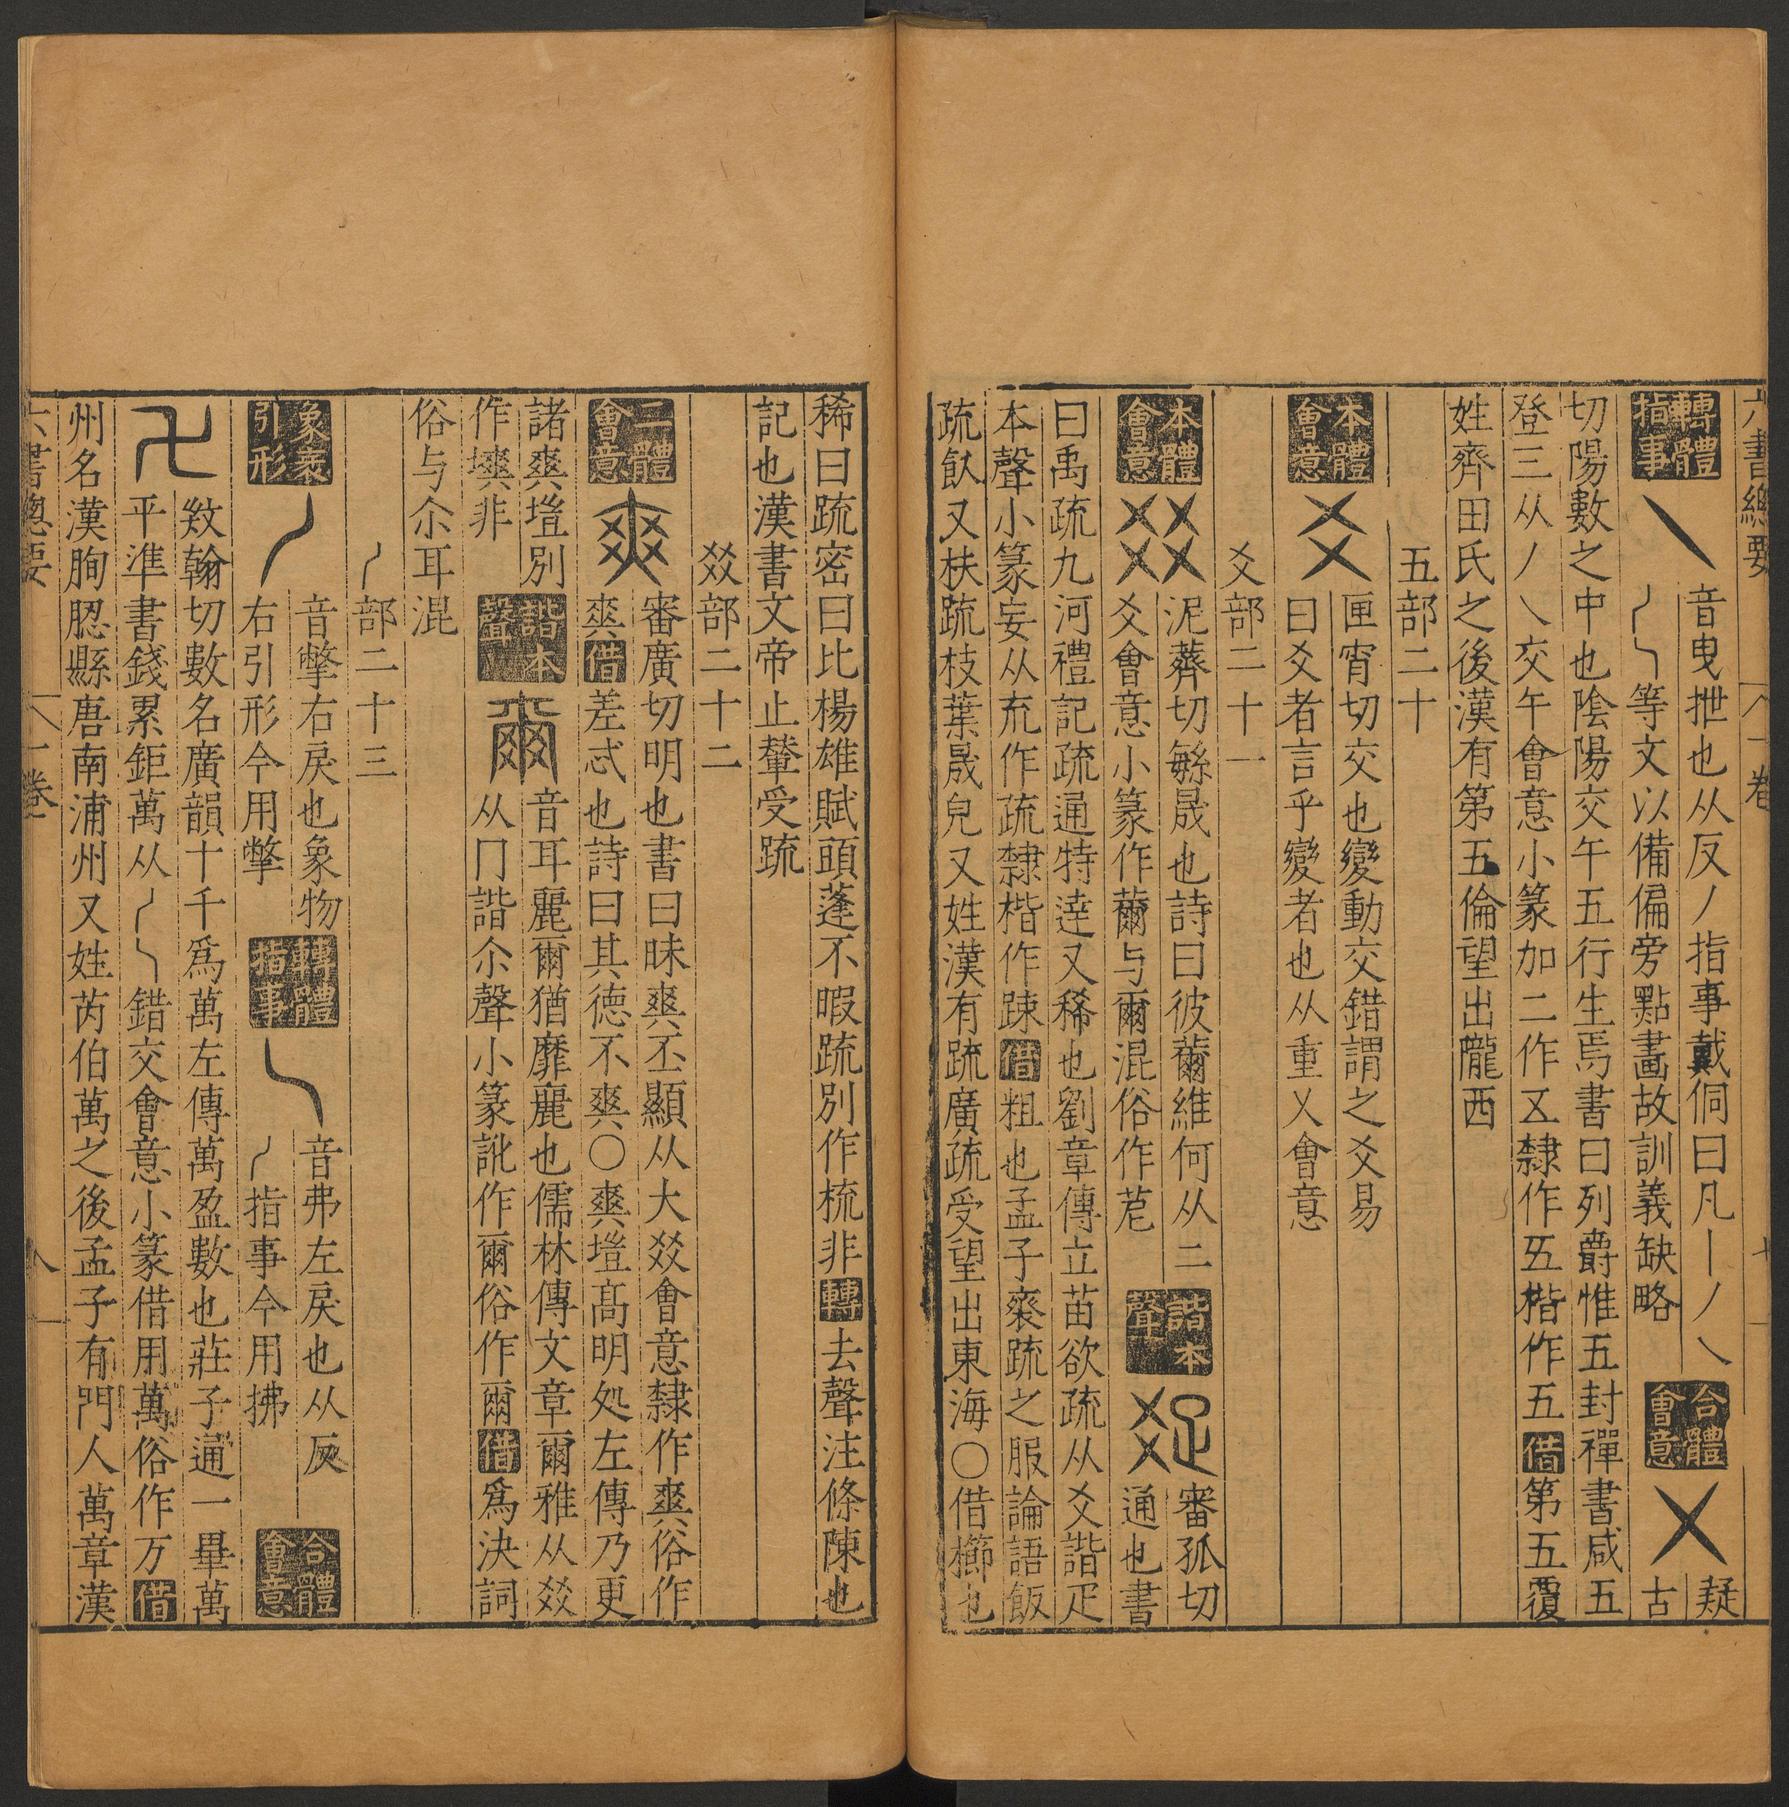 六書總要 卷一 七
轉體指事 乀 音曳抴也从反丿指事戴侗曰凡丨丿乀
等文以備偏旁點畫故訓義缺略 合體會意 㐅 疑古
切陽數之中也陰陽交午五行生焉書曰列爵惟五封禪書咸五
登三从丿乀交午會意小篆加二作㐅隸作𠄡楷作五借第五覆
姓齊田氏之後漢有第五倫望出隴西
五部二十
本體會意 爻 匣宵切交也變動交錯謂之爻易
曰爻者言乎變者也从重㐅會意
爻部二十一
本體會意 㸚 泥薺切繁晟也詩曰彼薾維何从二
爻會意小篆作薾与爾混俗作苨 諧本聲 𤕟 審孤切
通也書
曰禹疏九河禮記疏通特達又稀也劉章傳立苗欲疏从爻諧疋
本聲小篆妄从㐬作疏隸楷作踈借粗也孟子齊疏之服論語飯
疏飲又扶疏枝葉晟皃又姓漢有疏廣疏受望出東海○借櫛也
稀曰疏密曰比楊雄賦頭蓬不暇疏別作梳非轉去聲注條陳也
記也漢書文帝止輦受疏
㸚部二十二
二體會意 爽 審廣切明也書曰昧爽丕顯从大㸚會意隸作爽俗作
爽借差忒也詩曰其德不爽○爽塏高明処左傳乃更
諸爽塏別
作塽非 諧本聲 爾 音耳麗爾猶靡麗也儒林傳文章爾雅从㸚
从冂諧尒聲小篆訛作爾俗作爾借爲決詞
俗与尒耳混
丿部二十三
象衺引形 丿 音撆右戾也象物
右引形今用撆 轉體指事 乀 音弗左戾也从反
丿指事今用拂 合體會意
卍 㪇翰切數名廣韻十千爲萬左傳萬盈數也莊子通一畢萬
平準書錢累鉅萬从丿乀錯交會意小篆借用萬俗作万借
州名漢朐䏰縣唐南浦州又姓芮伯萬之後孟子有門人萬章漢
六書總要 卷一 八